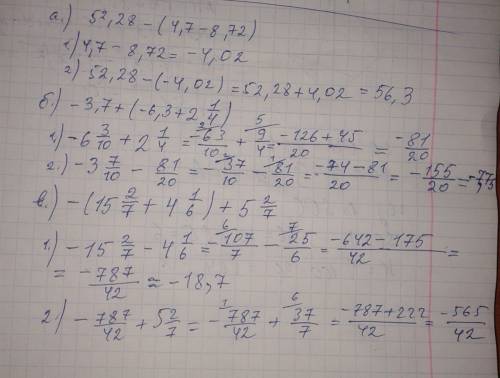 а.) 52,28 - (4,7 - 8,72)
1.) 4,7 - 8,72 = -4,02
2) 52,28 - (-4,02) = 52,28 + 4,02 = 56,3
б.) -3,7 + (-6,3 + 2 1/4)
1) -6 3/10 + 2 1/4 = -63/10 + 9/4 = -126 + 45/20 = -81/20
2.) -3 7/10 - 81/20 = -37/10 - 81/20 = -74 - 81/20 = -155/20 =
в.) -(15 2/7 + 4 1/6) + 5 2/7
1.) -15 2/7 - 4 1/6 = -107/7 - 25/6 = -642 - 175/42 =
= -787/42 ≈ -18,7
2.) -787/42 + 5 2/7 = -787/42 + 37/7 = -787 + 222/42 = -565/42